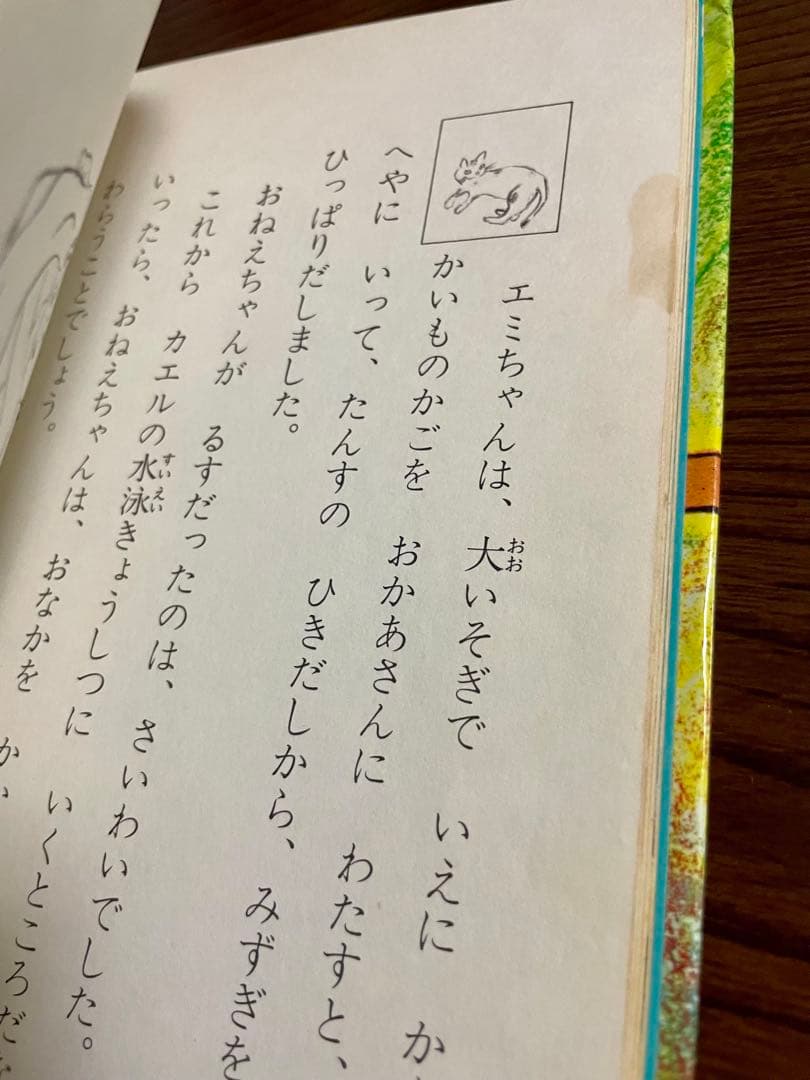 エミちゃんは、大いそぎで　いえに　か
かいものかごを　おかあさんに　わたすと、
へやに　いって、たんすの　ひきだしから、みずぎを
ひっぱりだしました。
おねえちゃんが　るすだったのは、さいわいでした。
これから　カエルの水泳きょうしつに　いくところだ
いったら、おねえちゃんは、おなかを　か
わらうことでしょう。